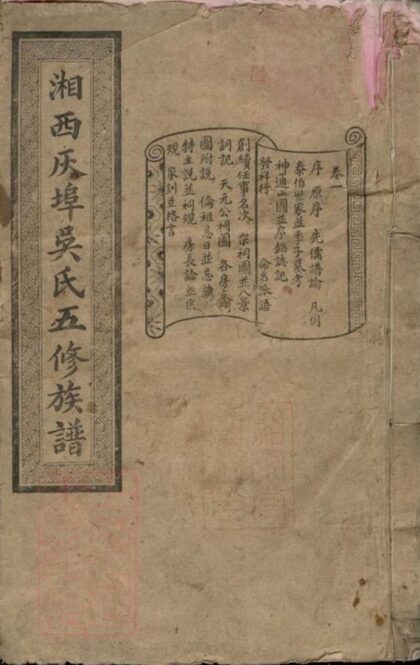 湘西灰埠吳氏五修族譜
卷一
序 原序 先儒譜論 凡例
泰伯世家並季子墓考
神通山圖並序銘誌記
發祥科 命名派語
創續任事名次 宗祠圖並八景
詞記 天元公祠圖 各房
圖附說 倫祖忌日並忌
特主說並祠規 房長論並
規 家訓並格言